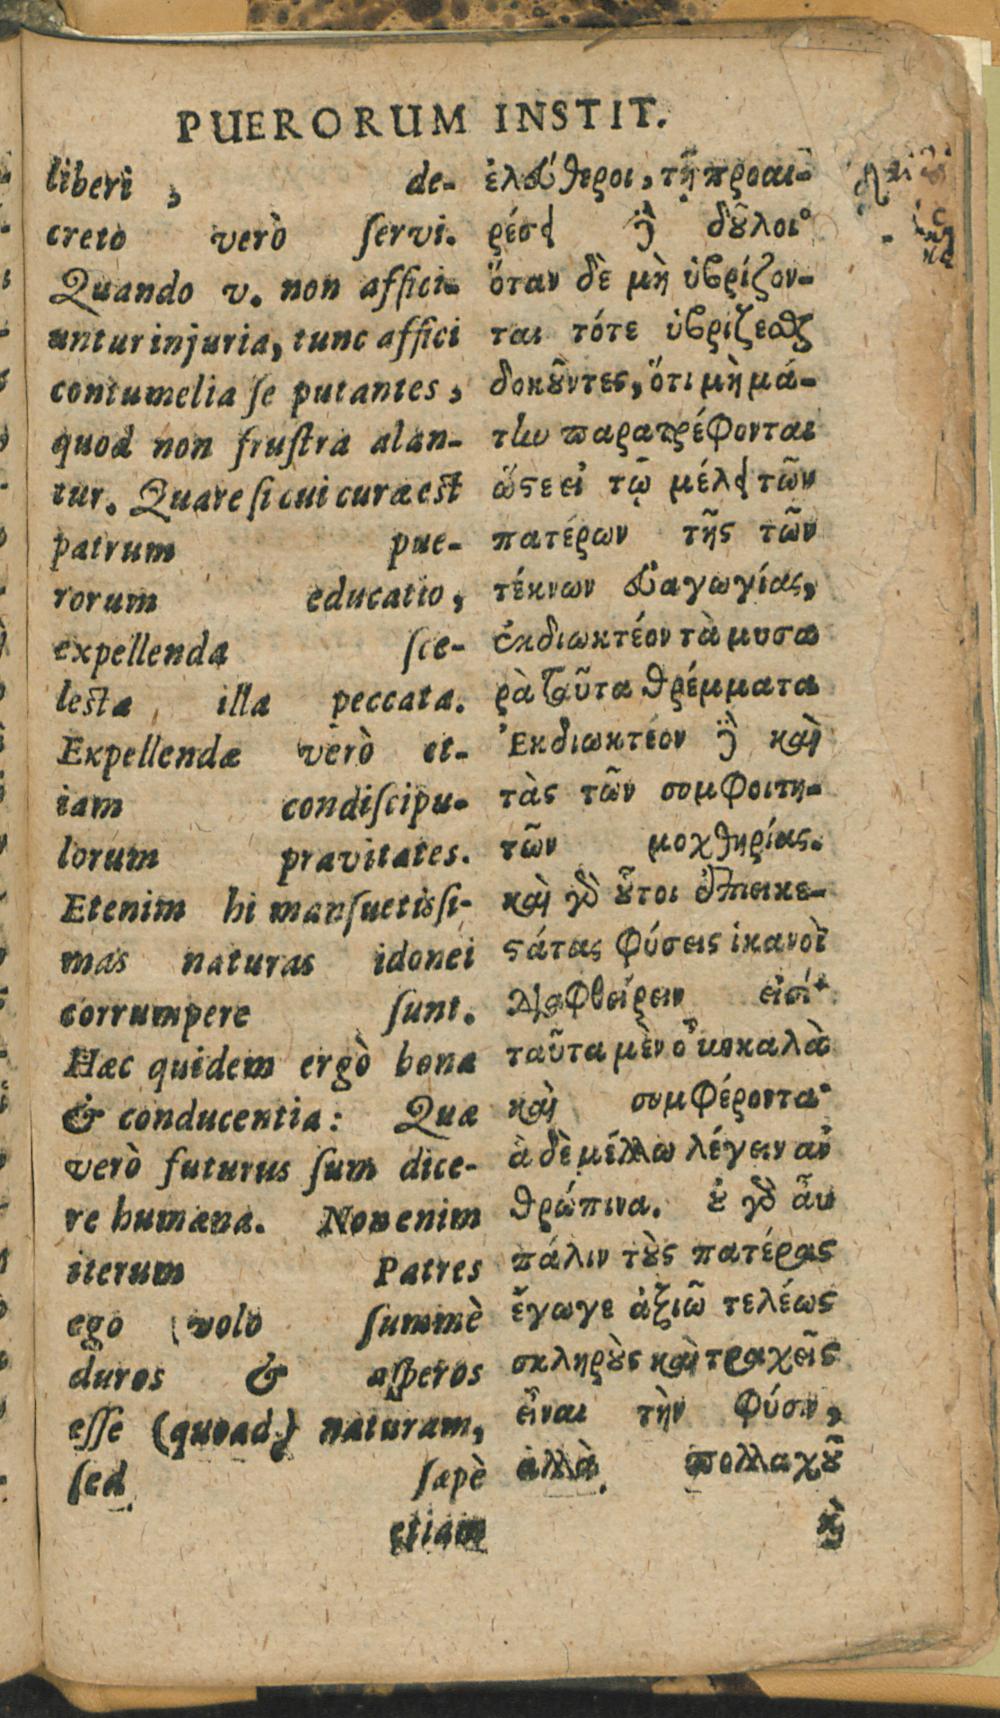 PUERORUM INSTIT.
liberi , de-
creto verò ſervi.
Quando v. non affici-
untur injuria, tunc affici
contumelia ſe putantes ,
quod non fruſtra alan-
tur. Quare ſi cui curæ eſt
patrum pue-
rorum educatio ,
expellenda ſce-
leſta illa peccata.
Expellendæ verò et-
iam condiſcipu-
lorum pravitates.
Etenim hi manſuetiſſi-
mas naturas idonei
corrumpere ſunt.
Hæc quidem ergò bona
& conducentia: Quæ
verò futurus ſum dice-
re humana. Non enim
iterum Patres
ego volo ſummè
duros & aſperos
eſſe (quoad) naturam,
ſed ſæpè
etiam
ἐλεύθεροι, τῇ προαι-
ρέσει ϳ̀ δȣ̃λοι·
ὅταν δὲ μὴ ὑβρίζον-
ται τότε ὑβρίζεσθαι
δοκȣ̃ντες, ὅτι μὴ μά-
την παρατρέφονται
ὥστε εἰ τῷ μέλει τῶν
πατέρων τῆς τῶν
τέκνων εὐαγωγίας,
ἐκδιωκτέον τὰ μυσα
ρὰ ταῦτα θρέμματα
Ἐκδιωκτέον ϳ̀ καὶ
τὰς τῶν συμφοιτη-
τῶν μοχθηρίας.
καὶ γὸ ȣ̃τοι ἐπιεικε-
στάτας φύσεις ἱκανοὶ
διαφθείρειν εἰσί·
ταῦτα μὲν ȣ̓͂ν καλὰ
καὶ συμφέροντα·
ἃ δὲ μέλλω λέγειν ἀν
θρώπινα. ȣ̓ γὸ ἂν
πάλιν τȣ̀ς πατέρας
ἔγωγε ἀξιῶ τελέως
σκληρȣ̀ς καὶ τραχεῖς
εἶναι τὴν φύσιν,
ἀλλὰ πολλαχȣ̃
ϗ̀